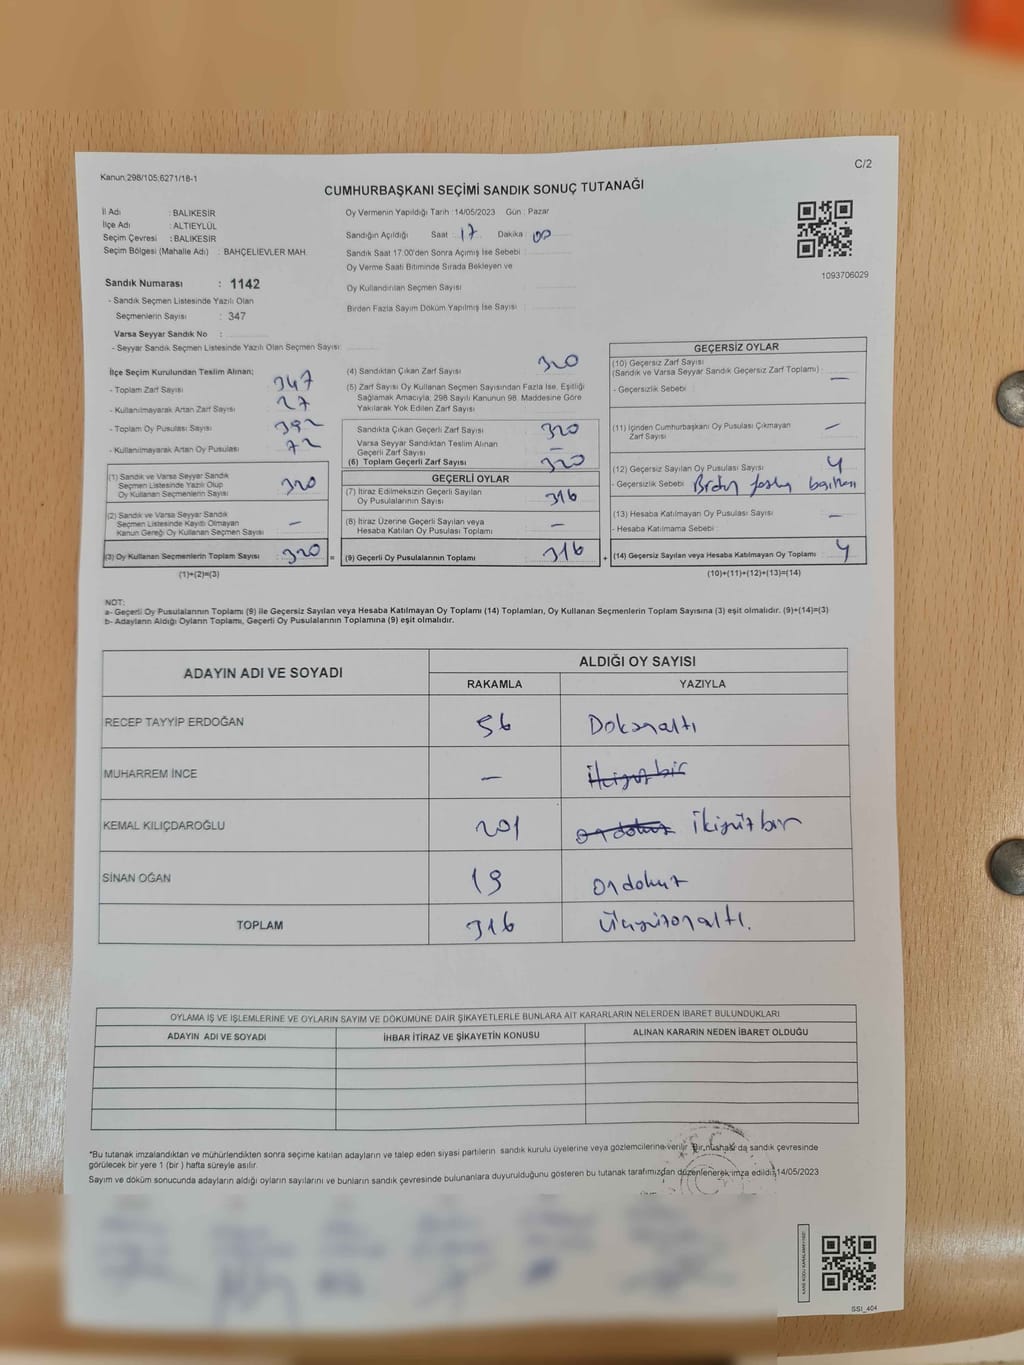 C/2
Kanun:298/105;6271/18-1
CUMHURBAŞKANI SEÇİMİ SANDIK SONUÇ TUTANAĞI
İl Adı : BALIKESİR
İlçe Adı : ALTIEYLÜL
Seçim Çevresi : BALIKESİR
Seçim Bölgesi (Mahalle Adı) : BAHÇELİEVLER MAH.
Oy Vermenin Yapıldığı Tarih : 14/05/2023 Gün : Pazar
Sandığın Açıldığı Saat : 17 Dakika : 00
Sandık Saat 17:00'den Sonra Açımış İse Sebebi :
Oy Verme Saati Bitiminde Sırada Bekleyen ve
Oy Kullandırılan Seçmen Sayısı :
Birden Fazla Sayım Döküm Yapılmış İse Sayısı :
1093706029
Sandık Numarası : 1142
- Sandık Seçmen Listesinde Yazılı Olan
Seçmenlerin Sayısı : 347
Varsa Seyyar Sandık No :
- Seyyar Sandık Seçmen Listesinde Yazılı Olan Seçmen Sayısı:
İlçe Seçim Kurulundan Teslim Alınan;
- Toplam Zarf Sayısı : 347
- Kullanılmayarak Artan Zarf Sayısı : 27
- Toplam Oy Pusulası Sayısı : 392
- Kullanılmayarak Artan Oy Pusulası : 72
(1) Sandık ve Varsa Seyyar Sandık
Seçmen Listesinde Yazılı Olup
Oy Kullanan Seçmenlerin Sayısı : 320
(2) Sandık ve Varsa Seyyar Sandık
Seçmen Listesinde Kayıtlı Olmayan
Kanun Gereği Oy Kullanan Seçmen Sayısı : –
(3) Oy Kullanan Seçmenlerin Toplam Sayısı : 320 =
(1)+(2)=(3)
(4) Sandıktan Çıkan Zarf Sayısı : 320
(5) Zarf Sayısı Oy Kullanan Seçmen Sayısından Fazla İse, Eşitliği
Sağlamak Amacıyla; 298 Sayılı Kanunun 98. Maddesine Göre
Yakılarak Yok Edilen Zarf Sayısı :
Sandıkta Çıkan Geçerli Zarf Sayısı : 320
Varsa Seyyar Sandıktan Teslim Alınan
Geçerli Zarf Sayısı : –
(6) Toplam Geçerli Zarf Sayısı : 320
GEÇERLİ OYLAR
(7) İtiraz Edilmeksizin Geçerli Sayılan
Oy Pusulalarının Sayısı : 316
(8) İtiraz Üzerine Geçerli Sayılan veya
Hesaba Katılan Oy Pusulası Toplamı : –
(9) Geçerli Oy Pusulalarının Toplamı : 316 +
GEÇERSİZ OYLAR
(10) Geçersiz Zarf Sayısı
(Sandık ve Varsa Seyyar Sandık Geçersiz Zarf Toplamı) : –
- Geçersizlik Sebebi :
(11) İçinden Cumhurbaşkanı Oy Pusulası Çıkmayan
Zarf Sayısı : –
(12) Geçersiz Sayılan Oy Pusulası Sayısı : 4
- Geçersizlik Sebebi : Birden fazla basılması
(13) Hesaba Katılmayan Oy Pusulası Sayısı : –
- Hesaba Katılmama Sebebi :
(14) Geçersiz Sayılan veya Hesaba Katılmayan Oy Toplamı : 4
(10)+(11)+(12)+(13)=(14)
NOT:
a- Geçerli Oy Pusulalarının Toplamı (9) ile Geçersiz Sayılan veya Hesaba Katılmayan Oy Toplamı (14) Toplamları, Oy Kullanan Seçmenlerin Toplam Sayısına (3) eşit olmalıdır. (9)+(14)=(3)
b- Adayların Aldığı Oyların Toplamı, Geçerli Oy Pusulalarının Toplamına (9) eşit olmalıdır.
ADAYIN ADI VE SOYADI ALDIĞI OY SAYISI
RAKAMLA YAZIYLA
RECEP TAYYİP ERDOĞAN 96 Doksanaltı
MUHARREM İNCE – İkiyüzbir
KEMAL KILIÇDAROĞLU 201 ondokuz İkiyüzbir
SİNAN OĞAN 19 ondokuz
TOPLAM 316 Üçyüzonaltı.
OYLAMA İŞ VE İŞLEMLERİNE VE OYLARIN SAYIM VE DÖKÜMÜNE DAİR ŞİKAYETLERLE BUNLARA AİT KARARLARIN NELERDEN İBARET BULUNDUKLARI
ADAYIN ADI VE SOYADI İHBAR İTİRAZ VE ŞİKAYETİN KONUSU ALINAN KARARIN NEDEN İBARET OLDUĞU
*Bu tutanak imzalandıktan ve mühürlendikten sonra seçime katılan adayların ve talep eden siyasi partilerin sandık kurulu üyelerine veya gözlemcilerine verilir. Bir nüshası da sandık çevresinde
görülecek bir yere 1 (bir) hafta süreyle asılır.
Sayım ve döküm sonucunda adayların aldığı oyların sayılarını ve bunların sandık çevresinde bulunanlara duyurulduğunu gösteren bu tutanak tarafımızdan düzenlenerek imza edildi. 14/05/2023
SSI_404